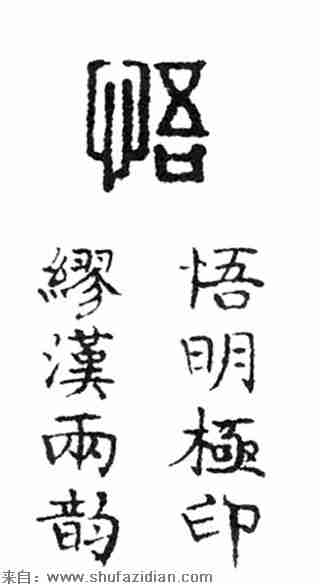 悟
悟明極印
繆漢兩韵
来自：www.shufazidian.com